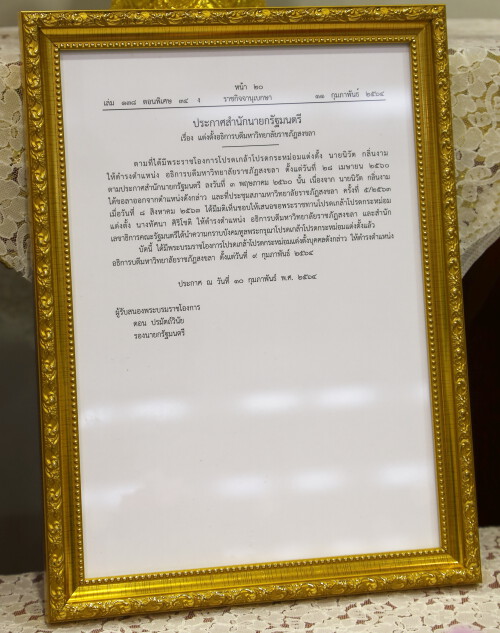 หน้า ๒๐
เล่ม ๑๓๘ ตอนพิเศษ ๓๔ ง ราชกิจจานุเบกษา ๑๑ กุมภาพันธ์ ๒๕๖๔
ประกาศสำนักนายกรัฐมนตรี
เรื่อง แต่งตั้งอธิการบดีมหาวิทยาลัยราชภัฏสงขลา
ตามที่ได้มีพระราชโองการโปรดเกล้าโปรดกระหม่อมแต่งตั้ง นายนิวัต กลิ่นงาม
ให้ดำรงตำแหน่ง อธิการบดีมหาวิทยาลัยราชภัฏสงขลา ตั้งแต่วันที่ ๒๘ เมษายน ๒๕๖๐
ตามประกาศสำนักนายกรัฐมนตรี ลงวันที่ ๓ พฤษภาคม ๒๕๖๐ นั้น เนื่องจาก นายนิวัต กลิ่นงาม
ได้ขอลาออกจากตำแหน่งดังกล่าว และที่ประชุมสภามหาวิทยาลัยราชภัฏสงขลา ครั้งที่ ๕/๒๕๖๓
เมื่อวันที่ ๘ สิงหาคม ๒๕๖๓ ได้มีมติเห็นชอบให้เสนอขอพระราชทานโปรดเกล้าโปรดกระหม่อม
แต่งตั้ง นางทัศนา ศิริโชติ ให้ดำรงตำแหน่ง อธิการบดีมหาวิทยาลัยราชภัฏสงขลา และสำนัก
เลขาธิการคณะรัฐมนตรีได้นำความกราบบังคมทูลพระกรุณาโปรดเกล้าโปรดกระหม่อมแต่งตั้งแล้ว
บัดนี้ ได้มีพระบรมราชโองการโปรดเกล้าโปรดกระหม่อมแต่งตั้งบุคคลดังกล่าว ให้ดำรงตำแหน่ง
อธิการบดีมหาวิทยาลัยราชภัฏสงขลา ตั้งแต่วันที่ ๙ กุมภาพันธ์ ๒๕๖๔
ประกาศ ณ วันที่ ๑๐ กุมภาพันธ์ พ.ศ. ๒๕๖๔
ผู้รับสนองพระบรมราชโองการ
ดอน ปรมัตถ์วินัย
รองนายกรัฐมนตรี